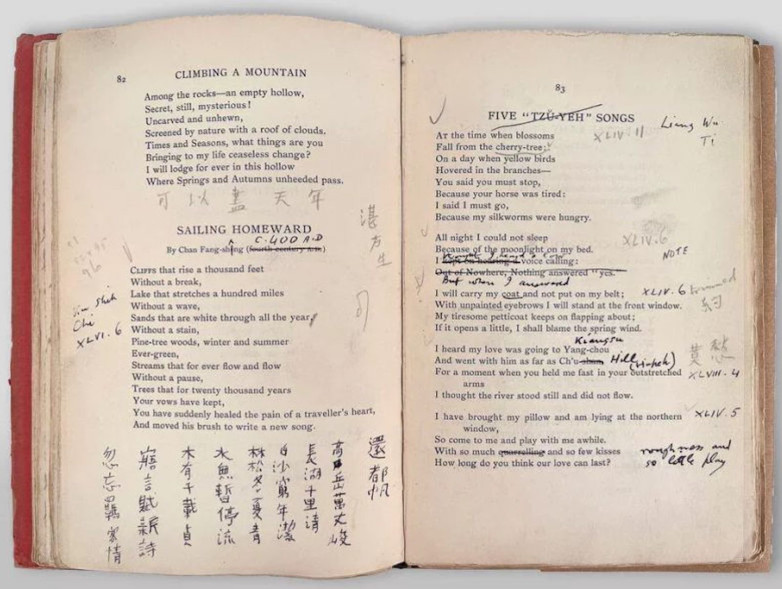 82
CLIMBING A MOUNTAIN
Among the rocks—an empty hollow,
Secret, still, mysterious!
Uncarved and unhewn,
Screened by nature with a roof of clouds.
Times and Seasons, what things are you
Bringing to my life ceaseless change?
I will lodge for ever in this hollow
Where Springs and Autumns unheeded pass.
可以盡天年
SAILING HOMEWARD
C. 400 A.D
By Chan Fang-shēng (fourth century A.D.)
湛方生
CLIFFS that rise a thousand feet
Without a break,
Lake that stretches a hundred miles
Without a wave,
Sands that are white through all the year,
Without a stain,
Pine-tree woods, winter and summer
Ever-green,
Streams that for ever flow and flow
Without a pause,
Trees that for twenty thousand years
Your vows have kept,
You have suddenly healed the pain of a traveller's heart,
And moved his brush to write a new song.
Shih
Chi
XLVI. 6
還都帆
高岳萬丈峻
長湖千里清
白沙窮年潔
林松冬夏青
水無暫停流
木有千載貞
寤言賦新詩
忽忘羈客情
83
FIVE "TZŬ-YEH" SONGS
Liang Wu
Ti
XLIV. 11
AT the time when blossoms
Fall from the cherry-tree:
On a day when yellow birds
Hovered in the branches—
You said you must stop,
Because your horse was tired:
I said I must go,
Because my silkworms were hungry.
All night I could not sleep
XLIV. 6
Because of the moonlight on my bed.
NOTE
voice calling:
Out of Nowhere, Nothing answered "yes."
But when I answered
I will carry my coat and not put on my belt;
XLIV. 6
With unpainted eyebrows I will stand at the front window.
約
My tiresome petticoat keeps on flapping about;
If it opens a little, I shall blame the spring wind.
Kiangsu
I heard my love was going to Yang-chou
And went with him as far as Ch'u-shan Hill
For a moment when you held me fast in your outstretched
arms
XLVIII. 4
I thought the river stood still and did not flow.
I have brought my pillow and am lying at the northern
window,
XLIV. 5
So come to me and play with me awhile.
With so much quarrelling and so few kisses
roughness and
so little play
How long do you think our love can last?